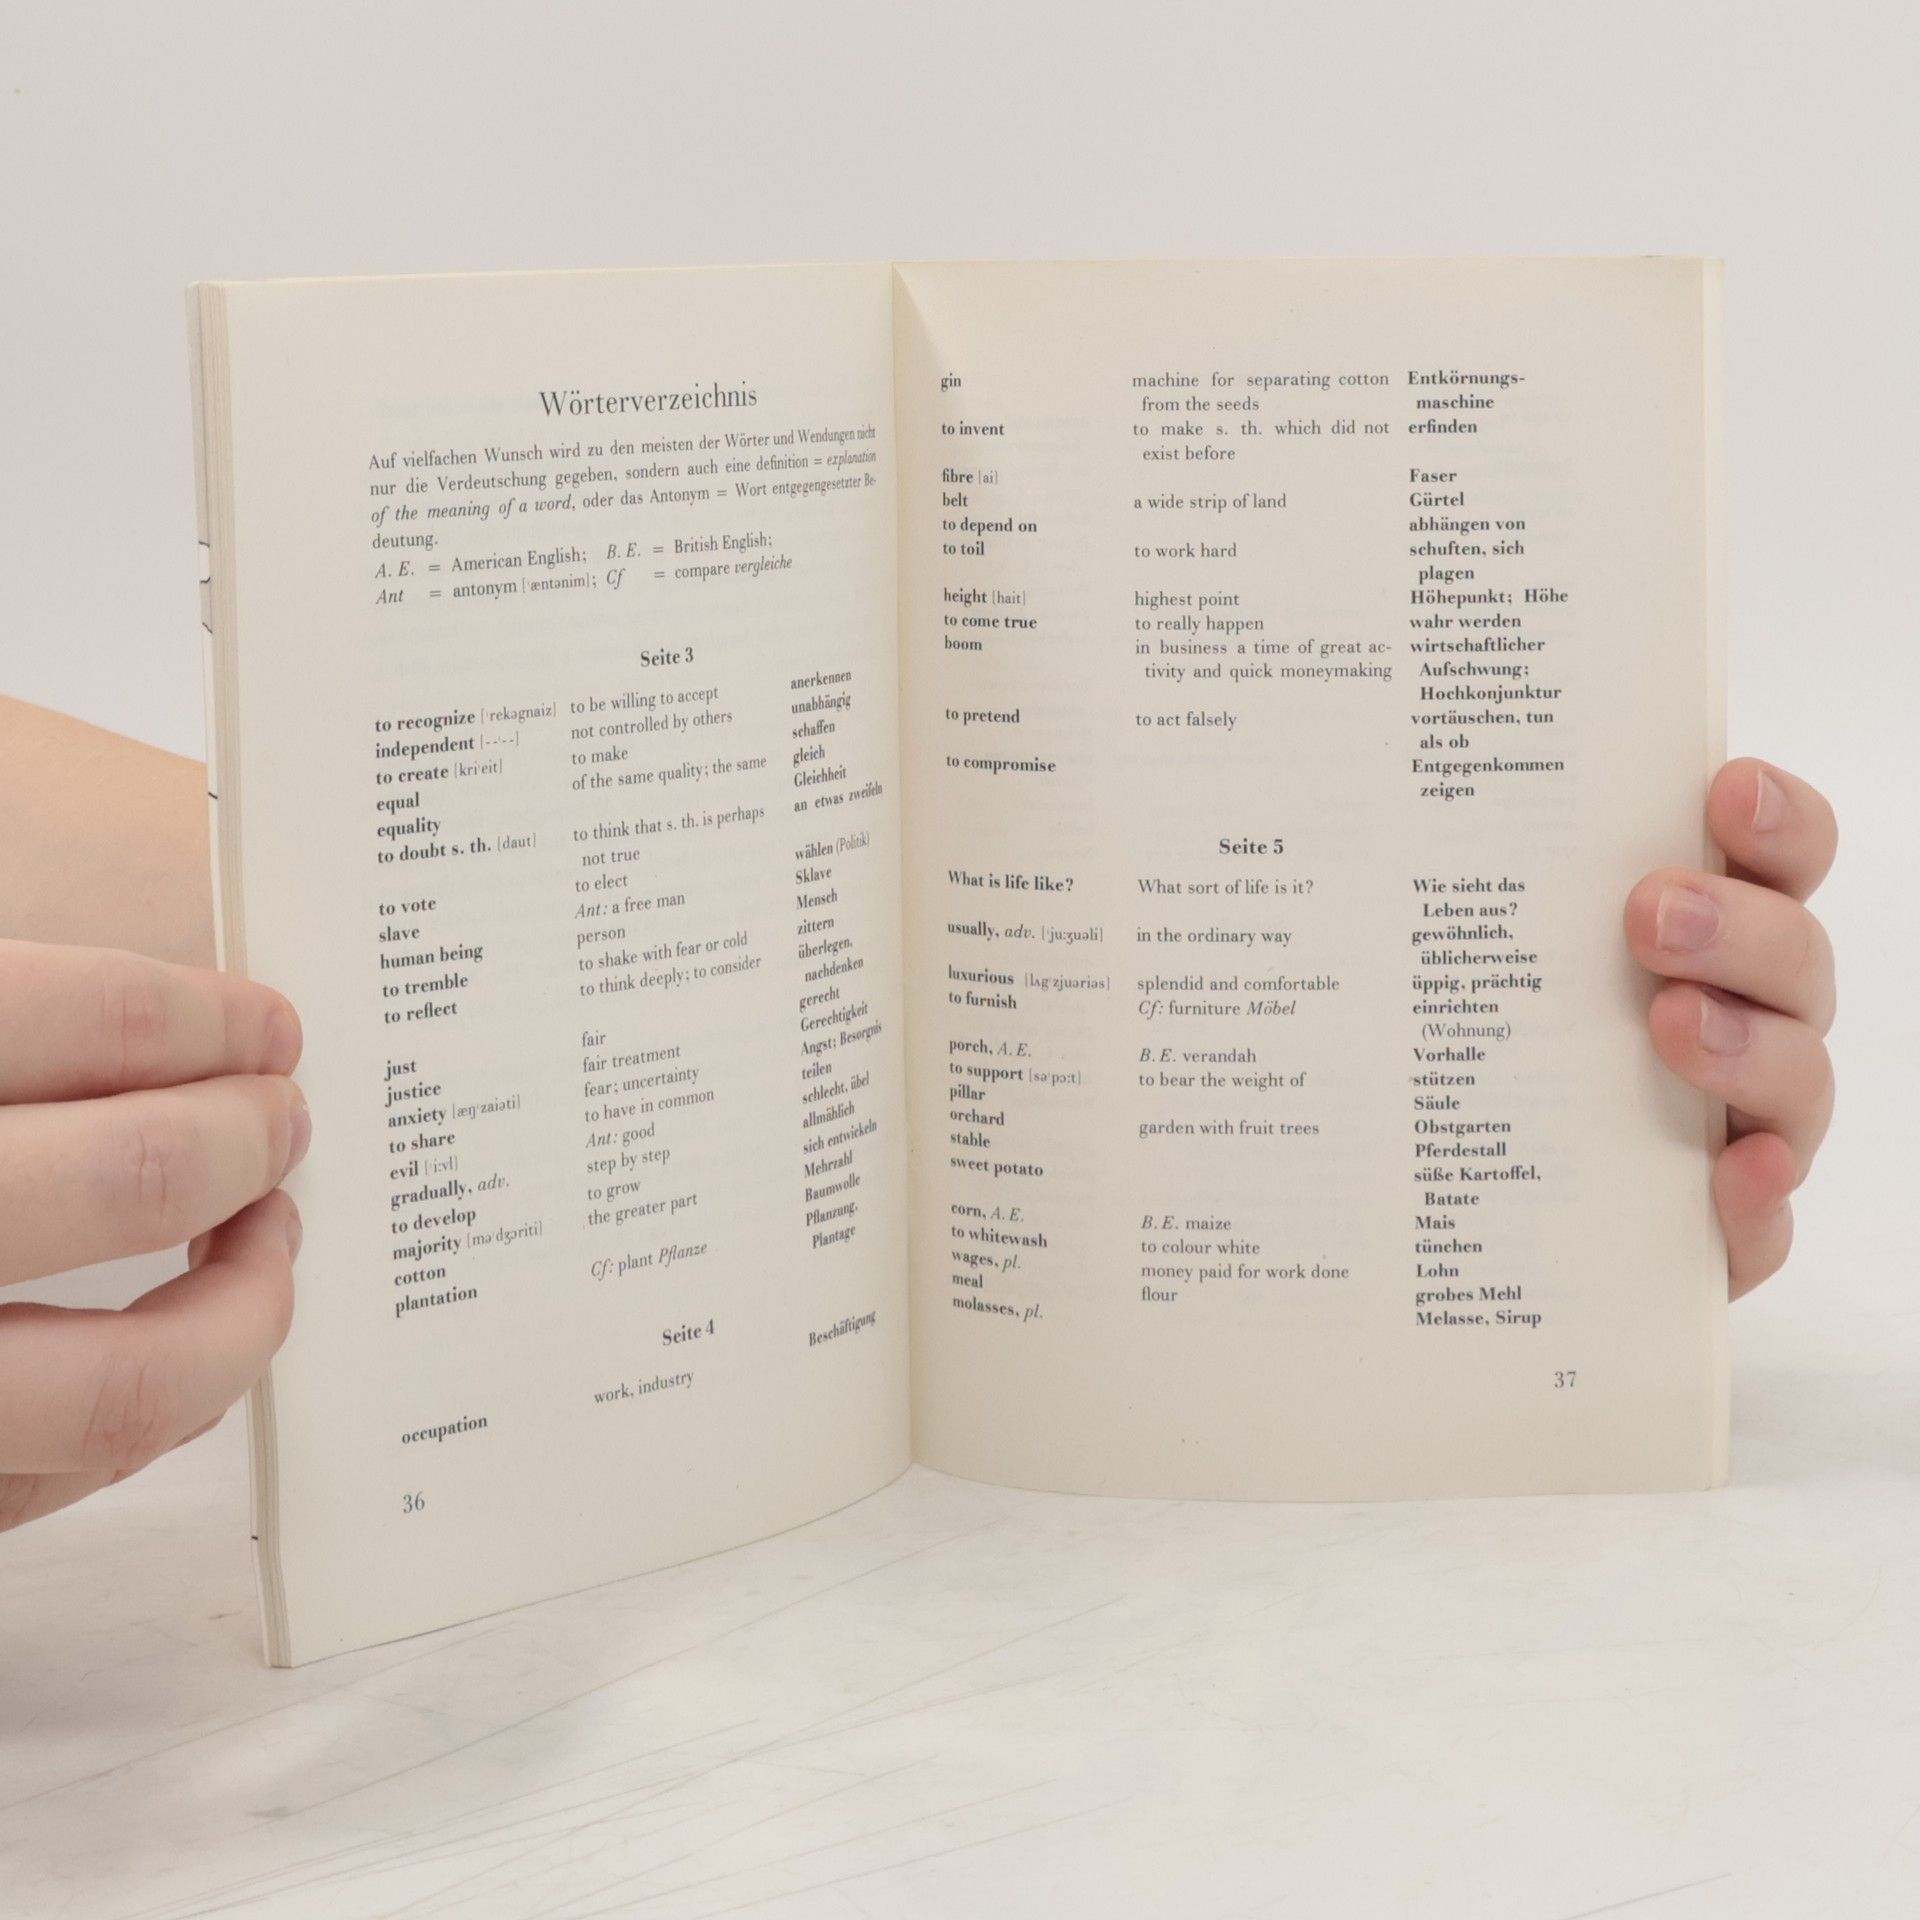 Wörterverzeichnis
Auf vielfachen Wunsch wird zu den meisten der Wörter und Wendungen nicht
nur die Verdeutschung gegeben, sondern auch eine definition = explanation
of the meaning of a word, oder das Antonym = Wort entgegengesetzter Be-
deutung.
A. E. = American English; B. E. = British English;
Ant = antonym [ˈæntənim]; Cf = compare vergleiche
Seite 3
to recognize [ˈrekəgnaiz] to be willing to accept anerkennen
independent [--ˈ--] not controlled by others unabhängig
to create [kriˈeit] to make schaffen
equal of the same quality; the same gleich
equality Gleichheit
to doubt s. th. [daut] to think that s. th. is perhaps an etwas zweifeln
not true
to vote to elect wählen (Politik)
slave Ant: a free man Sklave
human being person Mensch
to tremble to shake with fear or cold zittern
to reflect to think deeply; to consider überlegen,
nachdenken
just fair gerecht
justice fair treatment Gerechtigkeit
anxiety [æŋˈzaiəti] fear; uncertainty Angst; Besorgnis
to share to have in common teilen
evil [ˈi:vl] Ant: good schlecht, übel
gradually, adv. step by step allmählich
to develop to grow sich entwickeln
majority [məˈdʒɔriti] the greater part Mehrzahl
cotton Baumwolle
plantation Cf: plant Pflanze Pflanzung,
Plantage
Seite 4
occupation work, industry Beschäftigung
36
gin machine for separating cotton Entkörnungs-
from the seeds maschine
to invent to make s. th. which did not erfinden
exist before
fibre [ai] Faser
belt a wide strip of land Gürtel
to depend on abhängen von
to toil to work hard schuften, sich
plagen
height [hait] highest point Höhepunkt; Höhe
to come true to really happen wahr werden
boom in business a time of great ac- wirtschaftlicher
tivity and quick moneymaking Aufschwung;
Hochkonjunktur
to pretend to act falsely vortäuschen, tun
als ob
to compromise Entgegenkommen
zeigen
Seite 5
What is life like? What sort of life is it? Wie sieht das
Leben aus?
usually, adv. [ˈju:ʒuəli] in the ordinary way gewöhnlich,
üblicherweise
luxurious [lʌgˈzjuəriəs] splendid and comfortable üppig, prächtig
to furnish Cf: furniture Möbel einrichten
(Wohnung)
porch, A. E. B. E. verandah Vorhalle
to support [səˈpɔ:t] to bear the weight of stützen
pillar Säule
orchard garden with fruit trees Obstgarten
stable Pferdestall
sweet potato süße Kartoffel,
Batate
corn, A. E. B. E. maize Mais
to whitewash to colour white tünchen
wages, pl. money paid for work done Lohn
meal flour grobes Mehl
molasses, pl. Melasse, Sirup
37